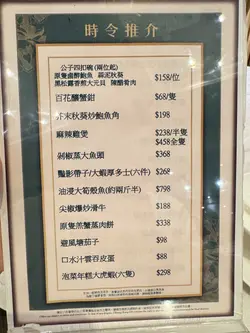 時令推介
公子四扣碗(兩位起)
原隻鹵醉鮑魚 蒜泥秋葵
黑松露香煎大元貝 陳醋肴肉 $158/位
百花釀蟹鉗 $68/隻
芥末秋葵炒鮑魚角 $198
麻辣雞煲 $238/半隻
$458全隻
剁椒蒸大魚頭 $368
豔影帶子/大蝦厚多士(六件) $268
油浸大筍殼魚(約兩斤半) $798
尖椒爆炒滑牛 $188
原隻蒸蟹蒸肉餅 $338
避風塘茄子 $98
口水汁雲百皮蛋 $88
泡菜年糕大虎蝦(六隻) $298